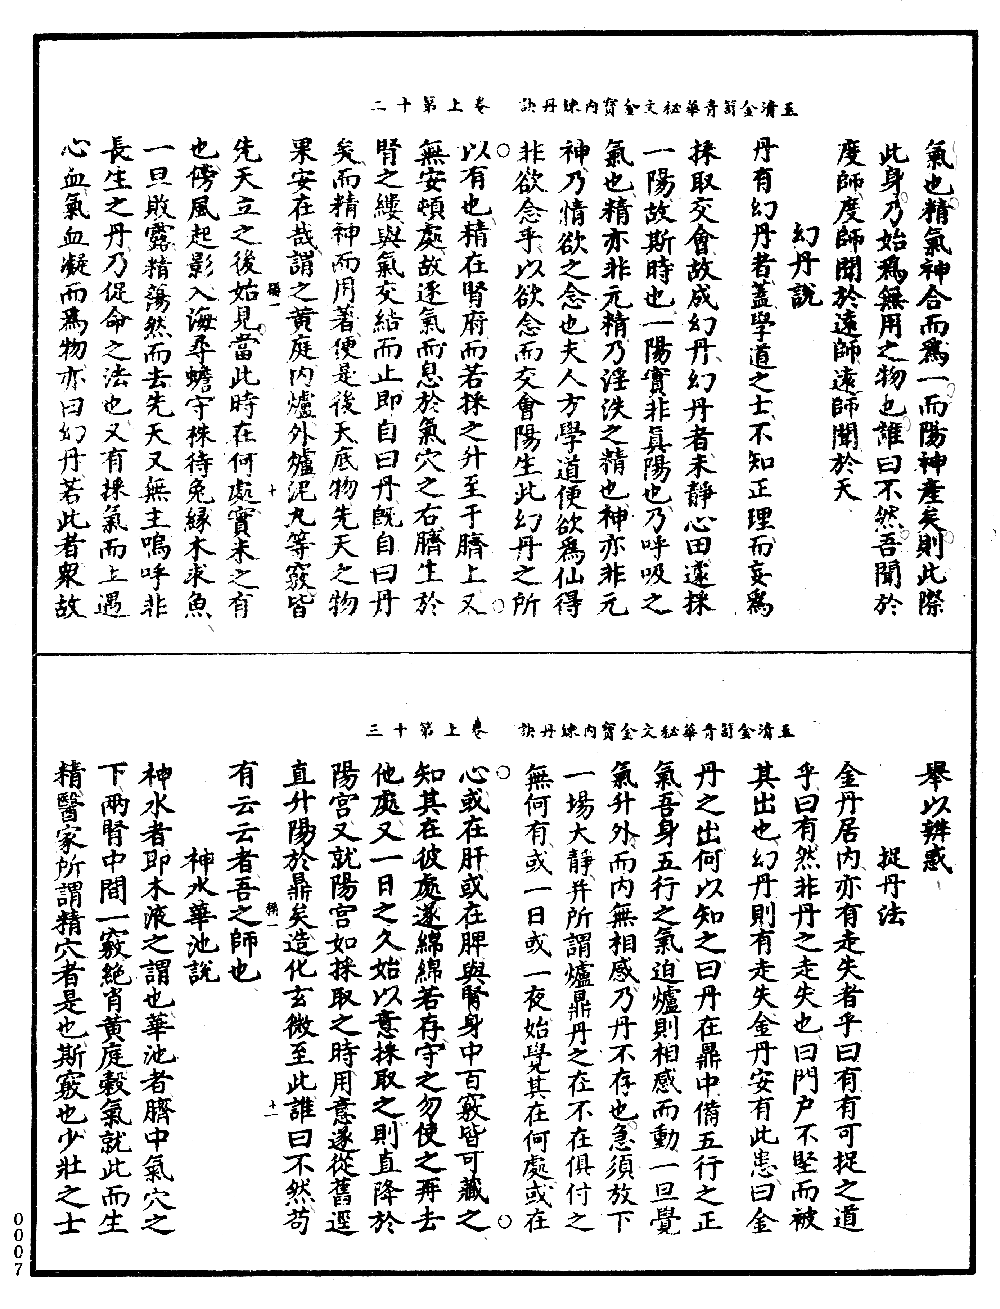 玉清金笥青華秘文金寶內鍊丹訣　卷上第十二
氣也精氣神合而爲一而陽神產矣則此際
此身乃始爲無用之物也誰曰不然吾聞於
度師度師聞於遠師遠師聞於天
幻丹說
丹有幻丹者蓋學道之士不知正理而妄爲
採取交會故成幻丹幻丹者未靜心田遽採
一陽故斯時也一陽實非眞陽也乃呼吸之
氣也精亦非元精乃淫泆之精也神亦非元
神乃情欲之念也夫人方學道便欲爲仙得
非欲念乎以欲念而交會陽生此幻丹之所
以有也精在腎府而若採之升至于臍上又
無安頓處故逐氣而息於氣穴之右臍生於
腎之縷與氣交結而止即自曰丹既自曰丹
矣而精神而用著便是後天底物先天之物
果安在哉謂之黄庭内爐外爐泥丸等竅皆
稱一
十
先天立之後姑見當此時在何處實未之有
也傍風起影入海尋蟾守株待兔緣木求魚
一旦敗露精蕩然而去先天又無主嗚呼非
長生之丹乃促命之法也又有採氣而上遇
心血氣血凝而爲物亦曰幻丹若此者衆故
玉清金笥青華秘文金寶內鍊丹訣　卷上第十三
舉以辨惑
捉丹法
金丹居内亦有走失者乎曰有有可捉之道
乎曰有然非丹之走失也曰門户不堅而被
其出也幻丹則有走失金丹安有此患曰金
丹之出何以知之曰丹在鼎中備五行之正
氣吾身五行之氣迫爐則相感而動一旦覺
氣升外而内無相感乃丹不存也急須放下
一場大靜并所謂爐鼎丹之在不在俱付之
無何有或一日或一夜始覺其在何處或在
心或在肝或在脾與腎身中百竅皆可藏之
知其在彼處遂綿綿若存守之勿使之再去
他處又一日之久始以意採取之則直降於
陽宮又就陽宮如採取之時用意遂從舊逕
直升陽於鼎矣造化玄微至此誰曰不然苟
稱一
十一
有云云者吾之師也
神水華池說
神水者即木液之謂也華池者臍中氣穴之
下兩腎中間一竅絶肖黄庭榖氣就此而生
精醫家所謂精穴者是也斯竅也少壯之士
0007